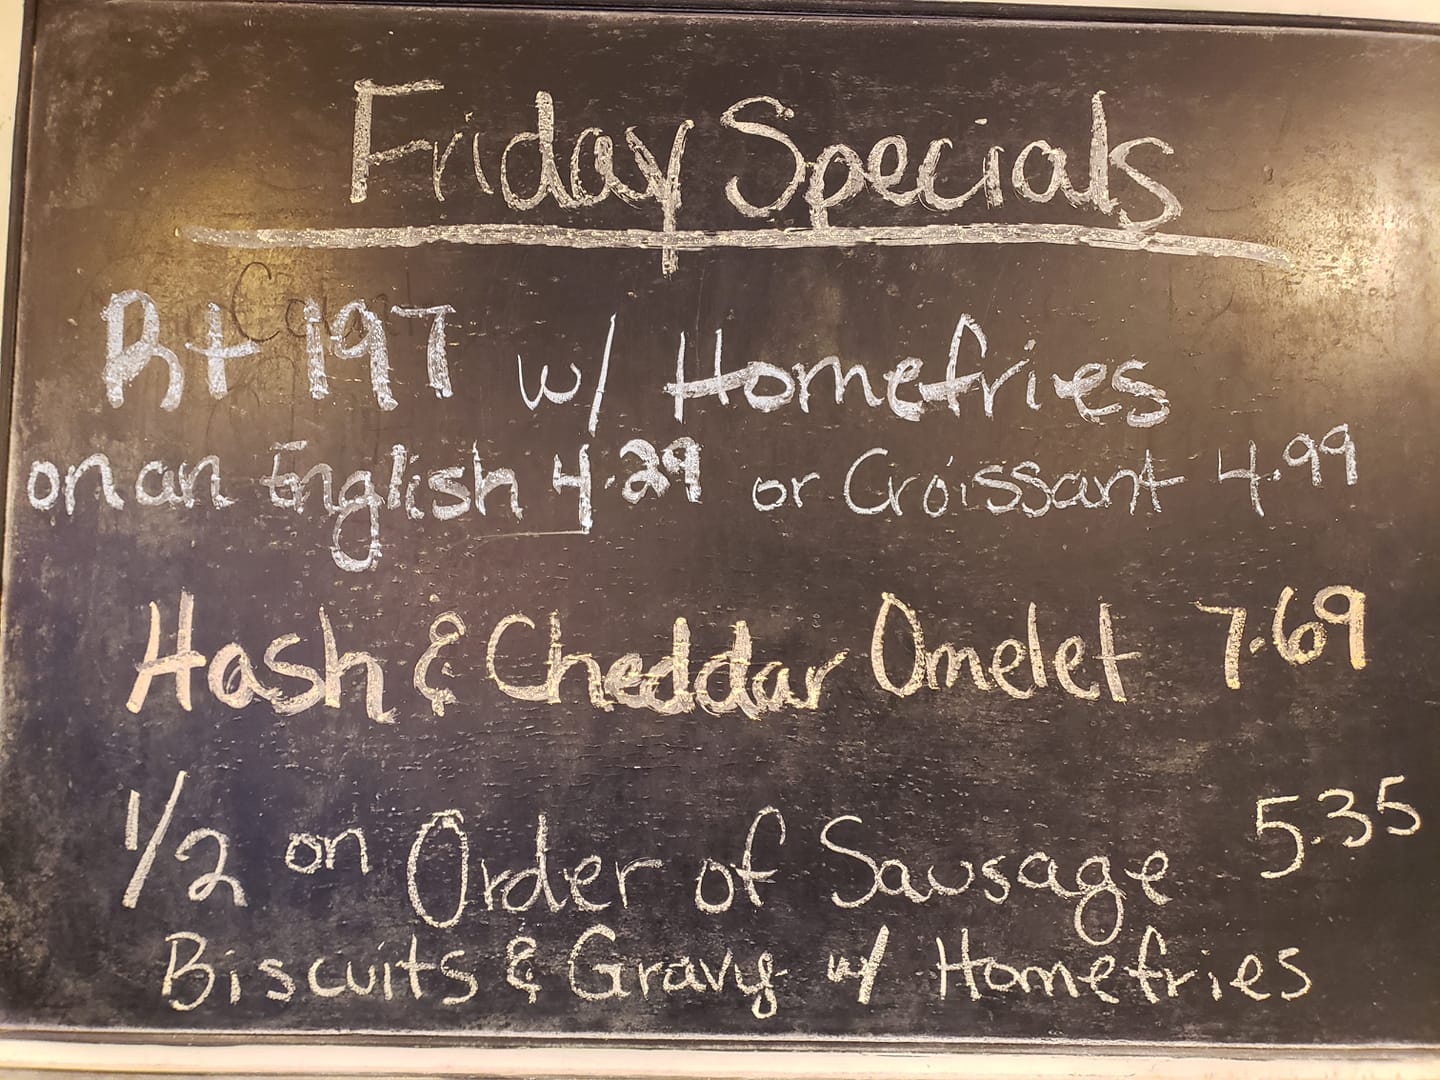 Friday Specials
Rt 197 w/ Homefries
on an English 4.29 or Croissant 4.99
Hash & Cheddar Omelet 7.69
1/2 on Order of Sausage 5.35
Biscuits & Gravy w/ Homefries